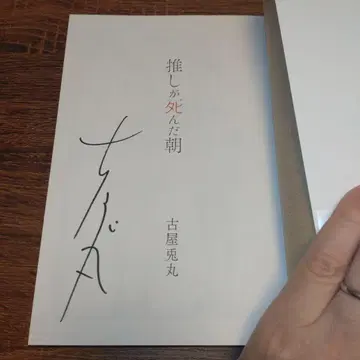 推しが死んだ朝
古屋兎丸